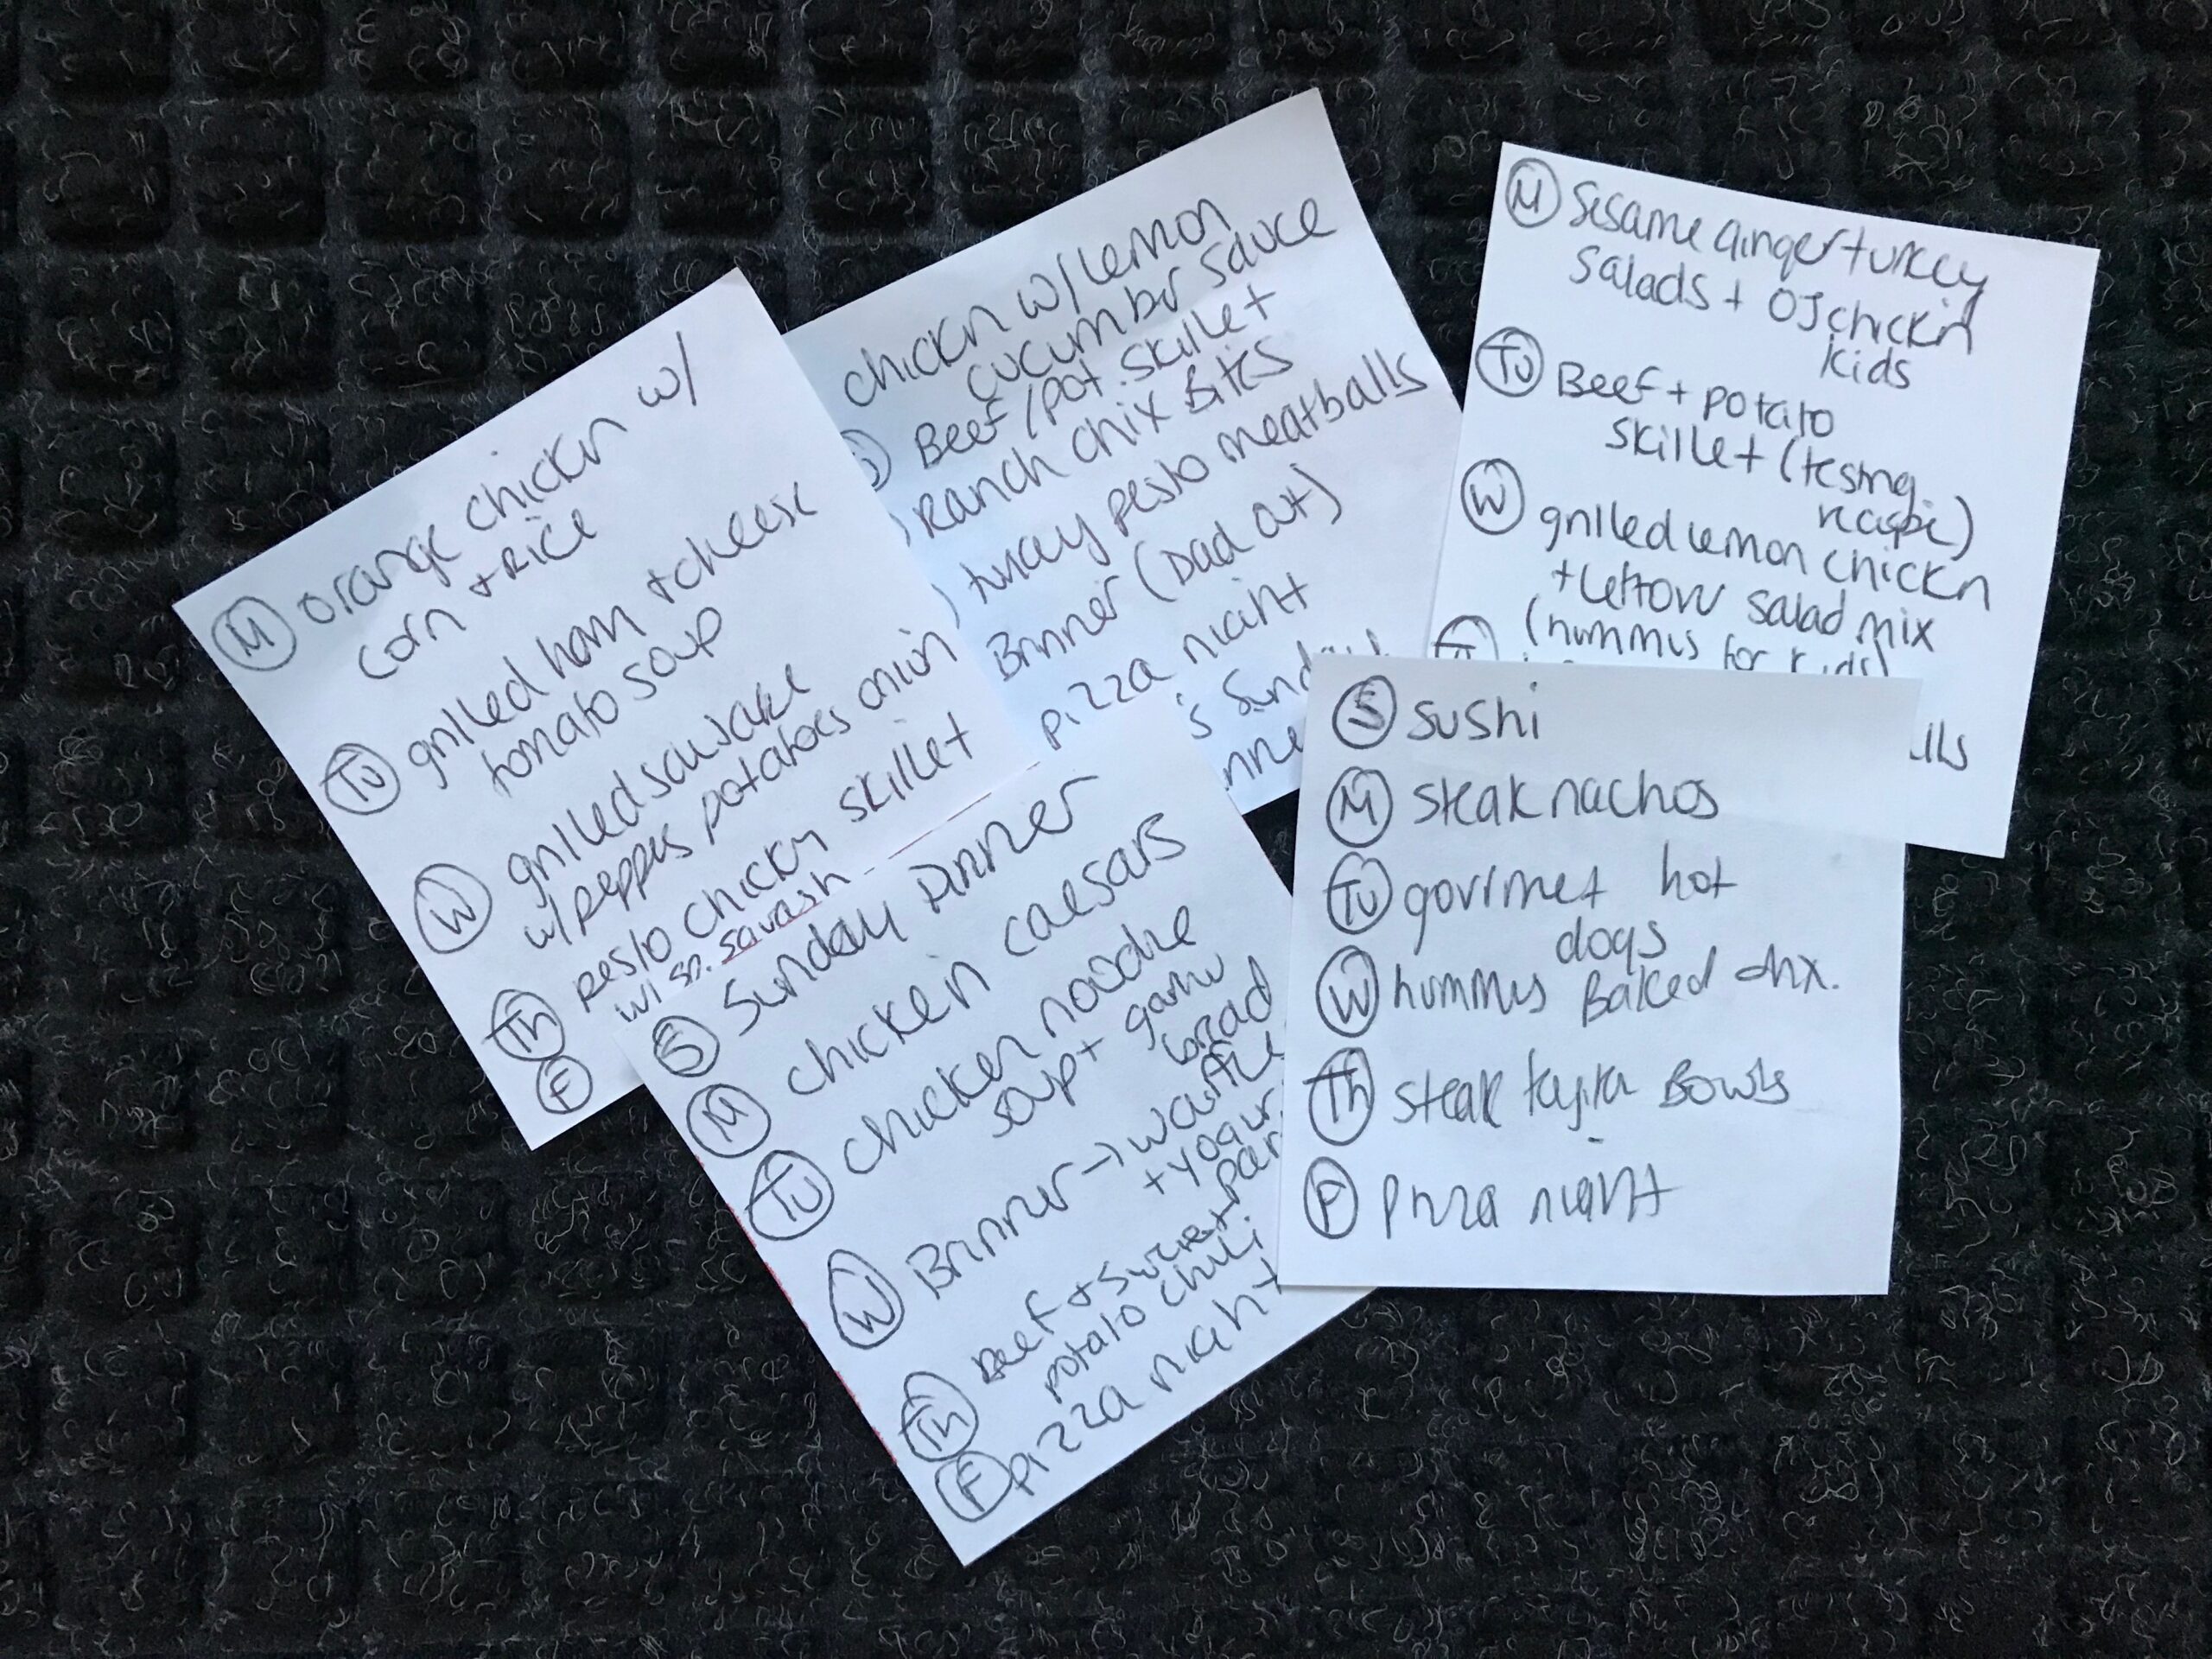 M orange chickn w/
corn + rice
Tu grilled ham + cheese
tomato soup
W grilled sausage
w/ peppers potatoes onion
Th pesto chicky skillet
w/ sp. squash
F
chickn w/ lemon
cucumber sauce
Beef/pot. skillet
Ranch chix Bites
turkey pesto meatballs
Brinner (Dad out)
pizza night
M Sesame ginger turkey
salads + OJ chickn
kids
Tu Beef + potato
skillet (testing
recipe)
W grilled lemon chickn
+ leftovr salad mix
(hummus for kids)
S Sunday Dinner
M chicken caesars
Tu chicken noodle
soup + garlic
bread
W Brinner → waffle
+ yogur
par
Th Beef + sweet
potato chili
F pizza night
S sushi
M steak nachos
Tu gourmet hot
dogs
W hummus Baked chx.
Th steak fajita Bowls
F pizza night